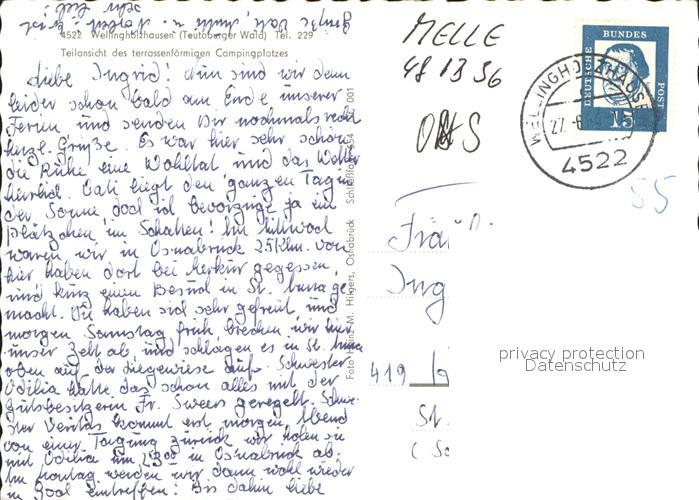 4522 Wellingholzhausen (Teutoburger Wald) Tel. 229
Teilansicht des terrassenförmigen Campingplatzes
Liebe Ingrid! Nun sind wir denn
leider schon bald am Ende unserer
Ferien und senden Dir nochmals recht
herzl. Grüße. Es war hier sehr schön
die Ruhe eine Wohltat und das Wetter
herrlich. Cati liegt den ganzen Tag in
der Sonne doch ich bevorzuge ja ein
Plätzchen im Schatten! Am Mittwoch
waren wir in Osnabrück 25 Klm. von
hier haben dort bei Merkur gegessen,
und kurz einen Besuch in St. ge-
macht. Die haben sich sehr gefreut und
morgen Samstag früh brechen wir hier
unser Zelt ab und schlagen es in St.
oben auf der Liegewiese auf. Schwester
Odilia hatte das schon alles mit der
Gutsbesitzerin Fr. Sweers geregelt. Schwe-
ster Veritas kommt erst morgen Abend
von einer Tagung zurück wir holen sie
mit Odilia um 23⁰⁰ in Osnabrück ab.
Im Montag werden wir dann wohl wieder
in Goal eintreffen! Bis dahin liebe
Foto Heinz M. Hilgers, Osnabrück
MELLE
48 13 36
DEUTSCHE BUNDES POST
15
WELLINGHOLZHAUSEN
27.
4522
55
Fräu
Ing
419
St.
privacy protection
Datenschutz